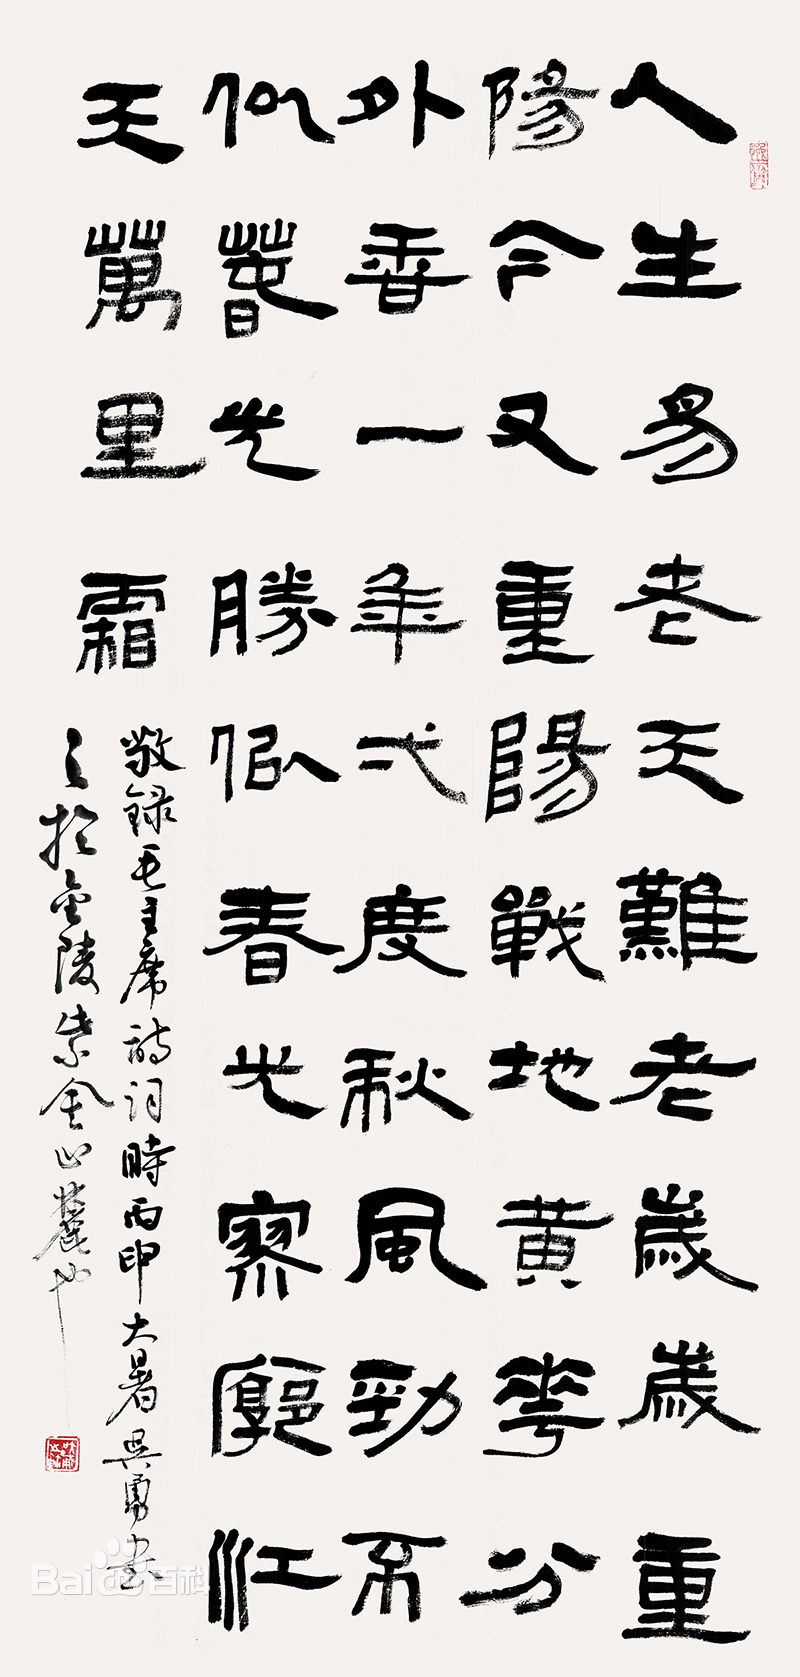 人生易老天難老歲歲重
陽今又重陽戰地黃花分
外香一年弌度秋風勁不
似春光勝似春光寥廓江
天萬里霜
敬録毛主席詩詞時丙申大暑吳勇書
之於金陵紫金山麓也
Baidu百科